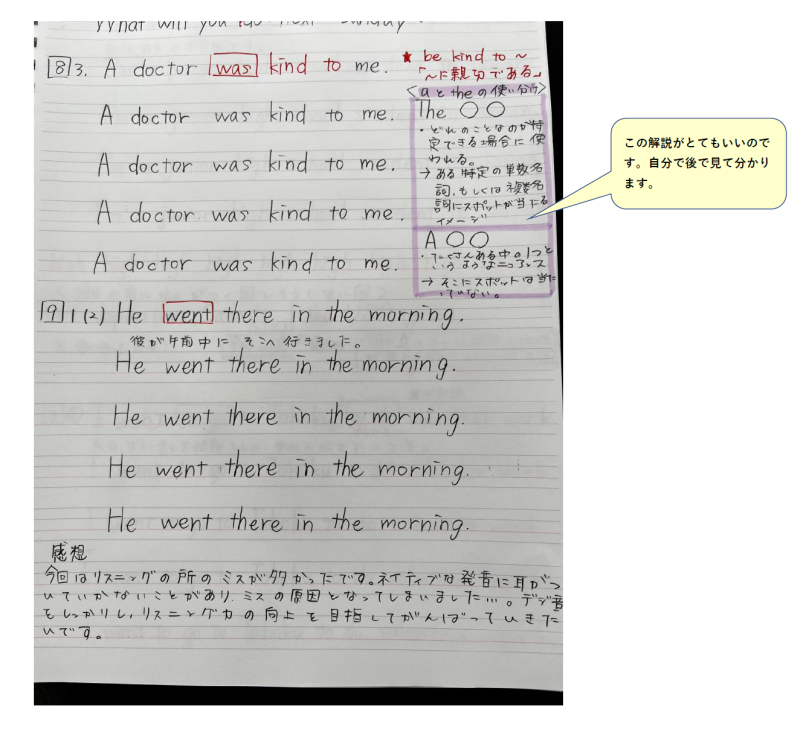 What will you do next Sunday?
8 3. A doctor was kind to me.
★ be kind to ～
「～に親切である」
A doctor was kind to me.
A doctor was kind to me.
A doctor was kind to me.
A doctor was kind to me.
<aとtheの使い分け>
The ○○
・どれのことなのか特
定できる場合に使
われる。
→ ある特定の単数名
詞、もしくは複数名
詞にスポットが当たる
イメージ
A ○○
・たくさんある中の1つと
いうようなニュアンス
→ そこにスポットは当た
っていない。
この解説がとてもいいので
す。自分で後で見て分かり
ます。
9 1(2) He went there in the morning.
彼が午前中に そこへ 行きました。
He went there in the morning.
He went there in the morning.
He went there in the morning.
He went there in the morning.
感想
今回はリスニングの所のミスが多かったです。ネイティブな発音に耳がつ
いていかないことがあり、ミスの原因となってしまいました…。デジ音
をしっかりし、リスニング力の向上を目指してがんばっていきた
いです。